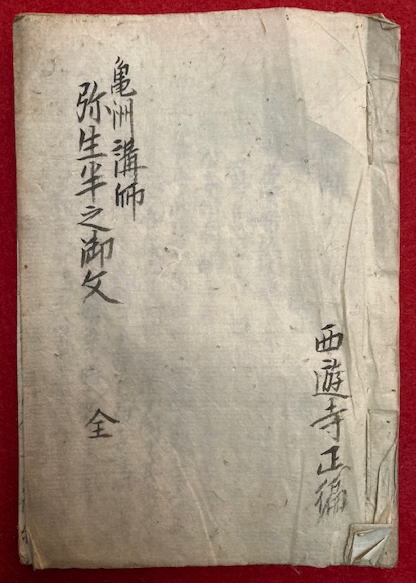 西遊寺正徧
亀洲講師
弥生半之御文 全